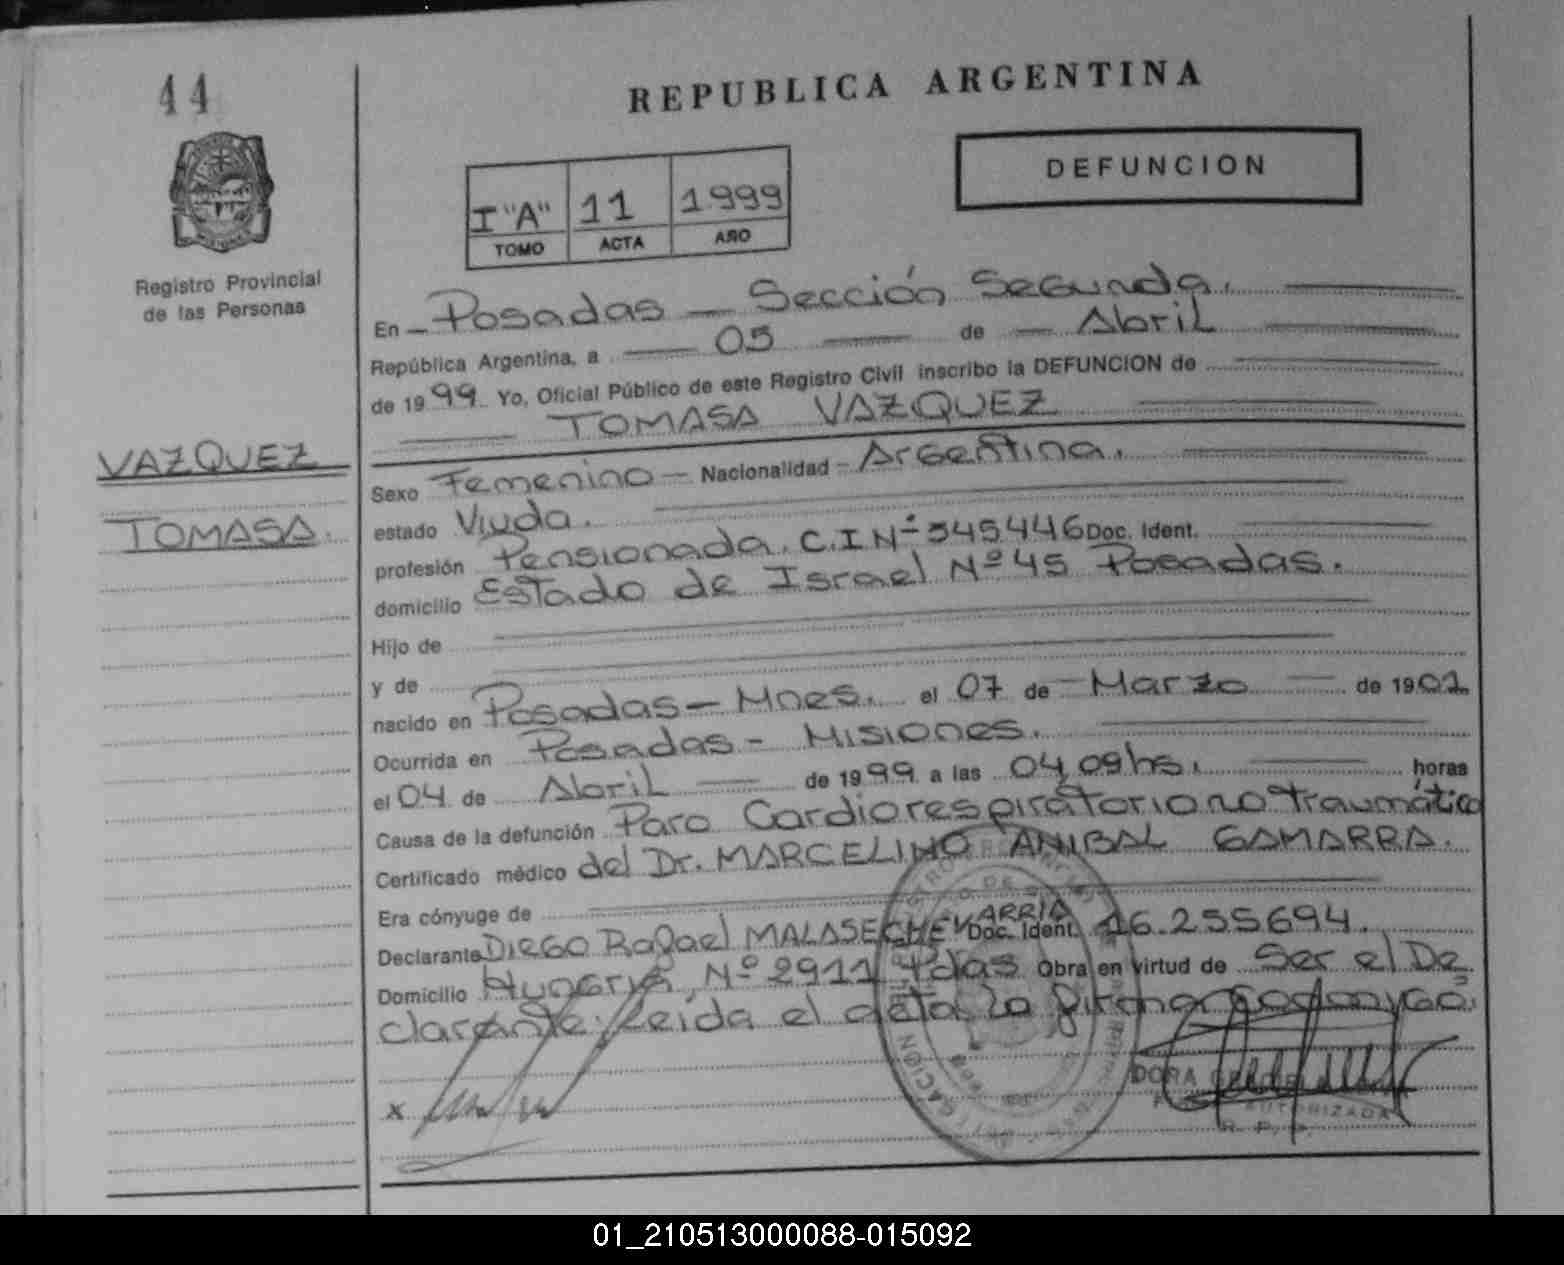 44
REPUBLICA ARGENTINA
DEFUNCION
I "A" 11 1999
TOMO ACTA AÑO
Registro Provincial
de las Personas
VAZQUEZ
TOMASA.
En - Posadas - Sección Segunda.
República Argentina, a 05 de Abril
de 1999. Yo, Oficial Público de este Registro Civil inscribo la DEFUNCION de
TOMASA VAZQUEZ
Sexo Femenino - Nacionalidad - Argentina.
estado Viuda.
profesión Pensionada. C.I Nº 345446 Doc. Ident.
domicilio Estado de Israel Nº 45 Posadas.
Hijo de
y de
nacido en Posadas - Mnes. el 07 de Marzo de 1902
Ocurrida en Posadas - Misiones.
el 04 de Abril de 1999 a las 04,09hs. horas
Causa de la defunción Paro Cardiorespiratorio no traumático
Certificado médico del Dr. MARCELINO ANIBAL GAMARRA.
Era cónyuge de
Declarante Diego Rafael MALASECHEVARRIA Doc. Ident. 16.255694.
Domicilio Hungría Nº 2911 Pdas Obra en virtud de Ser el De
clarante. Leída el acta, la firman
x
DORA
AUTORIZADA
R. P.
01_210513000088-015092